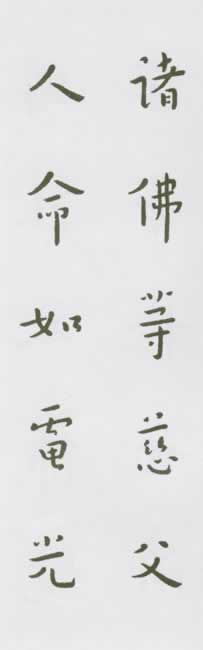 诸佛等慈父
人命如電光